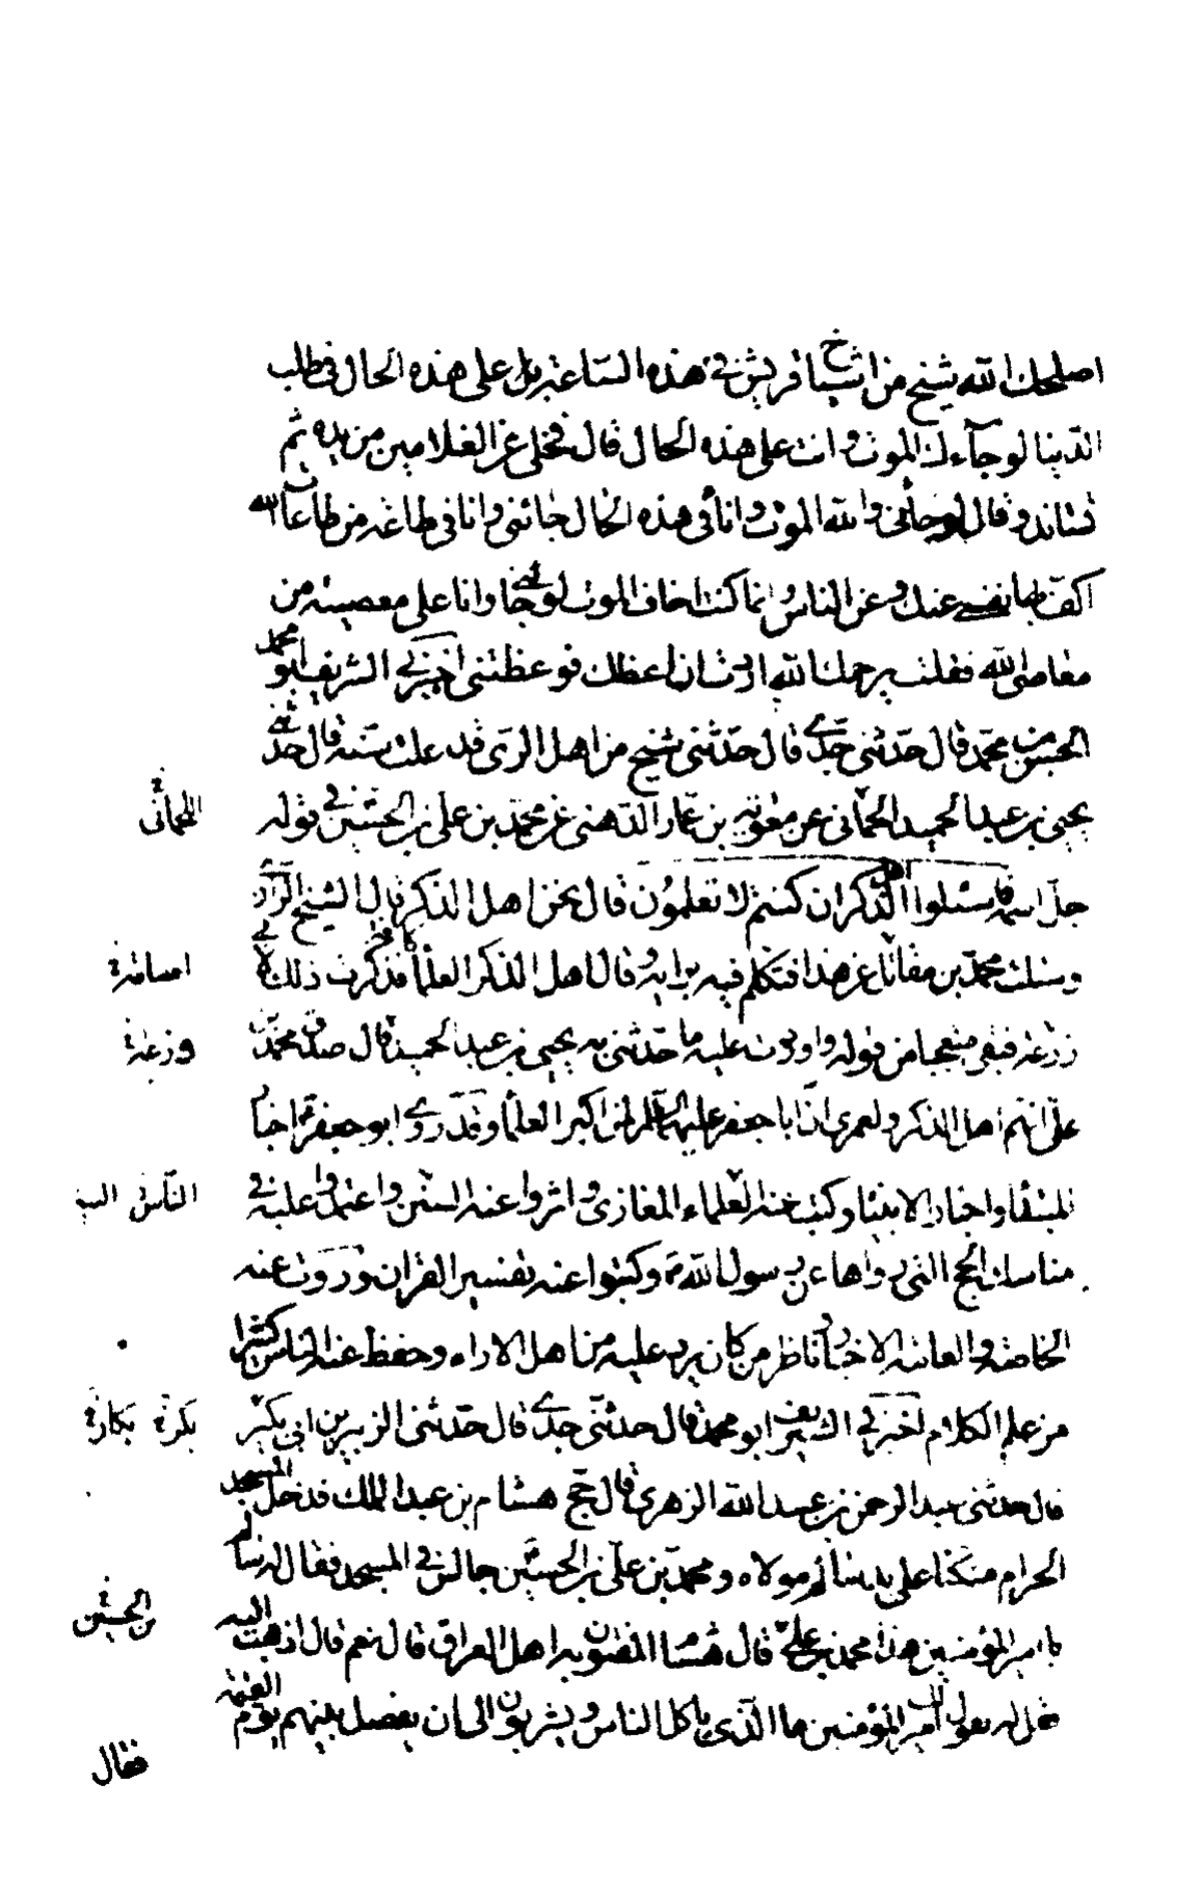 اصلحك الله شيخ من اشياخ قريش في هذه الساعة على هذه الحال في طلب
الدنيا لو جآءك الموت وانت على هذه الحال قال فخلى عن الغلامين من يده ثم
تساند وقال لو جائني والله الموت وانا في هذه الحال جائني وانا في طاعة من طاعات الله
اكف بها نفسي عنك وعن الناس وانما كنت اخاف الموت لو جائني وانا على معصية من
معاصي الله فقلت يرحمك الله اردت ان اعظك فوعظتني اخبرني الشريف ابو محمد
الحسن بن محمد قال حدثني جدي قال حدثني شيخ من اهل الرى قد علت سنه قال حدثني
يحيى بن عبد الحميد الحماني عن معوية بن عمار الدهني عن محمد بن علي بن الحسين في قوله
جل اسمه فاسئلوا اهل الذكر ان كنتم لا تعلمون قال نحن اهل الذكر قال الشيخ الرازي
وسئلت محمد بن مقاتل عن هذا فتكلم فيه برايه وقال اهل الذكر العلمآء كافة فذكرت ذلك لابي
زرعة فبقى متعجبا من قوله واوردت عليه ما حدثني به يحيى بن عبد الحميد قال صدق محمد بن
علي انهم اهل الذكر ولعمري ان ابا جعفر عليه السلام لمن اكبر العلمآء وقد روى ابو جعفر اخبار
المبتدأ واخبار الانبيآء وكتب عنه العلماء المغازي واثروا عنه السنن واعتمدوا عليه في
مناسك الحج التي رواها عن رسول الله وكتبوا عنه تفسير القران وروت عنه
الخاصة والعامة الاخبار وناظر من كان يرد عليه من اهل الاراء وحفظ عنه الناس كثيرا
من علم الكلام اخبرني الشريف ابو محمد قال حدثني جدي قال حدثني الزبير بن ابي بكر
قال حدثني عبد الرحمن بن عبد الله الزهري قال حج هشام بن عبد الملك فدخل المسجد
الحرام متكئا على يد سالم مولاه ومحمد بن علي بن الحسين جالس في المسجد فقال له سالم
يا امير المؤمنين هذا محمد بن علي قال هشام المفتون به اهل العراق قال نعم قال اذهب اليه
فقل له يقول لك امير المؤمنين ما الذي ياكل الناس ويشربون الى ان يفصل بينهم يوم القيمة
فقال